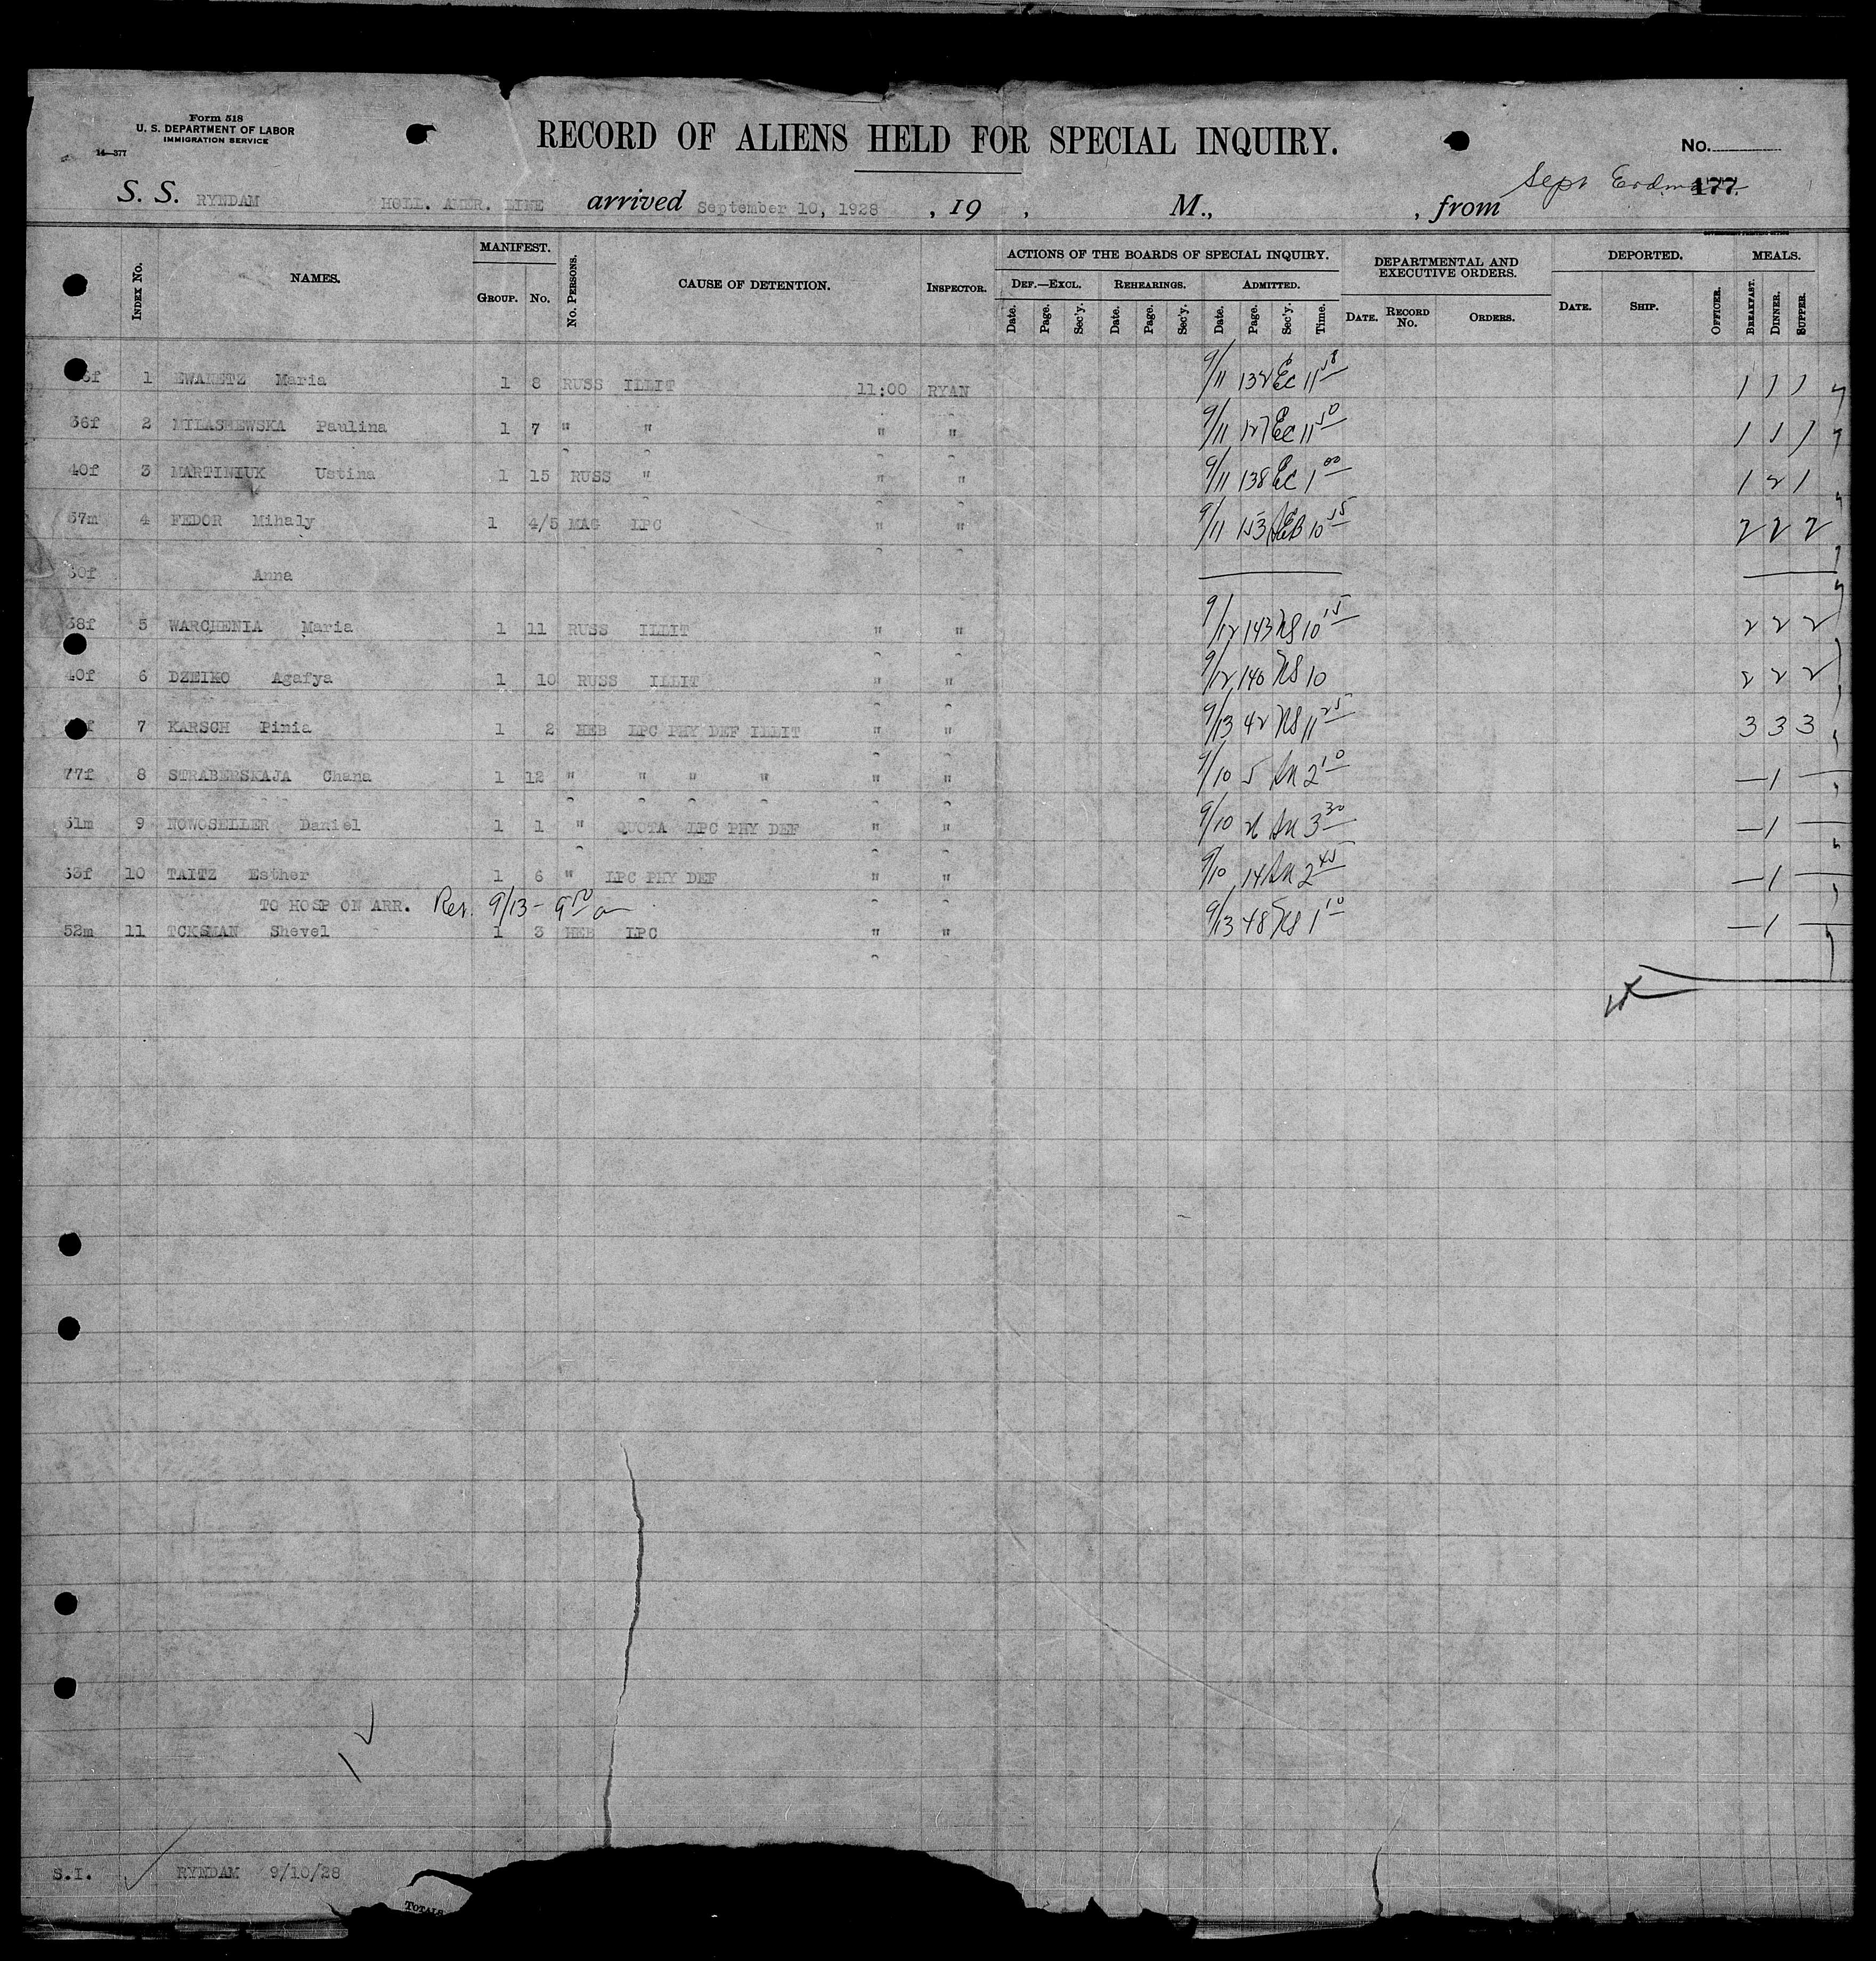 Form 518
U. S. DEPARTMENT OF LABOR
IMMIGRATION SERVICE
14—377
RECORD OF ALIENS HELD FOR SPECIAL INQUIRY.
No.
177
S. S. RYNDAM HOLL. AMER. LINE arrived September 10, 1928 , 19 , M., , from Sept
GOVERNMENT PRINTING OFFICE
Index No. NAMES. MANIFEST. Group. No. No. Persons. CAUSE OF DETENTION. Inspector. ACTIONS OF THE BOARDS OF SPECIAL INQUIRY. DEPARTMENTAL AND EXECUTIVE ORDERS. DEPORTED. MEALS.
Def.—Excl. Rehearings. Admitted.
Date. Page. Sec'y. Date. Page. Sec'y. Date. Page. Sec'y. Time. Date. Record No. Orders. Date. Ship. Officer. Breakfast. Dinner. Supper.
1 EWANETZ Maria 1 8 RUSS ILLIT 11:00 RYAN 9/11 132 EC 11 1 1 1
36f 2 MILASHEWSKA Paulina 1 7 " " " " 9/11 127 EC 11 50 1 1 1
40f 3 MARTINIUK Ustina 1 15 RUSS " " " 9/11 138 EC 1 00 1 2 1
37m 4 FEDOR Mihaly 1 4/5 MAG LPC " " 9/11 153 10 15 2 2 2
30f Anna
38f 5 WARCHENIA Maria 1 11 RUSS ILLIT " " 9/12 143 NS 10 15 2 2 2
40f 6 DZEIKO Agafya 1 10 RUSS ILLIT " " 9/12 140 NS 10 2 2 2
7 KARSCH Pinia 1 2 HEB LPC PHY DEF ILLIT " " 9/13 42 NS 11 25 3 3 3
77f 8 STRABERSKAJA Chana 1 12 " " " " " " 9/10 5 2 10 — 1 —
51m 9 NOWOSELLER Daniel 1 1 " QUOTA LPC PHY DEF " " 9/10 3 30 — 1 —
10 TAITZ Esther 1 6 " LPC PHY DEF " " 9/10 14 2 45 — 1 —
TO HOSP ON ARR. Rev. 9/13 - 9 50 a
52m 11 TCKSMAN Shevel 1 3 HEB LPC " " 9/13 48 NS 1 10 — 1 —
S.I. RYNDAM 9/10/28
Totals